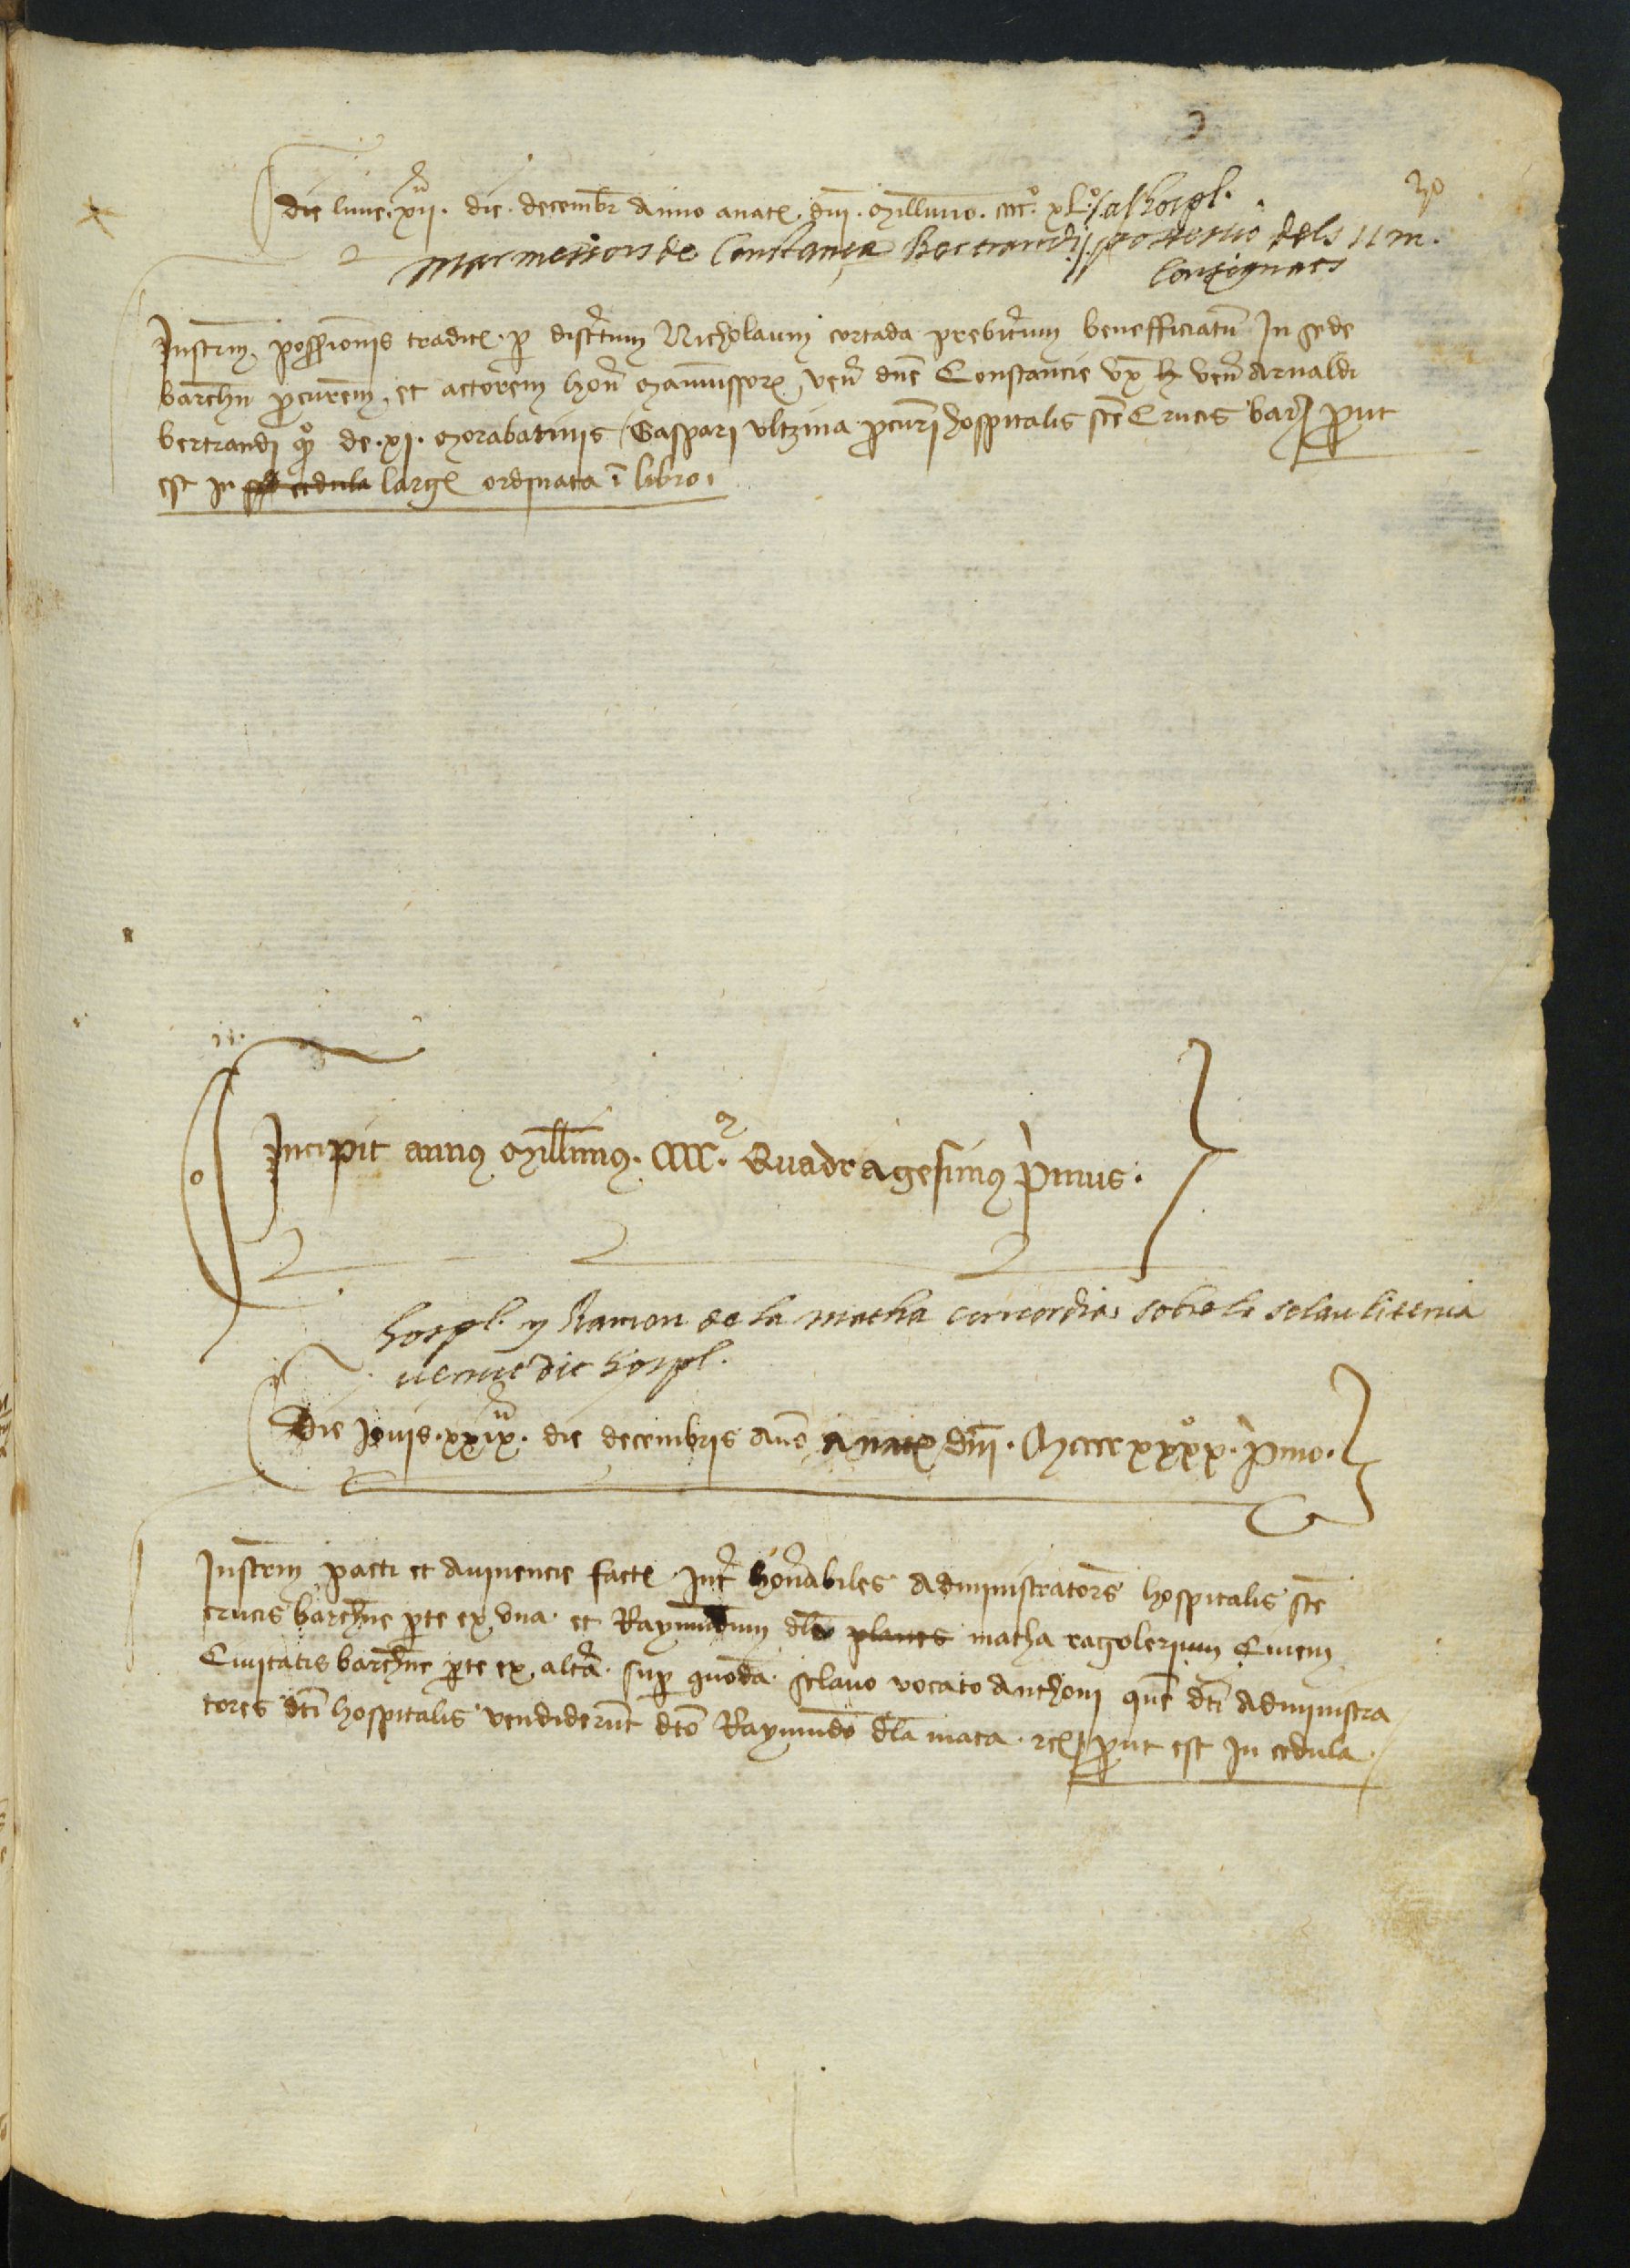 30
die lune xii die decembr Anno anatᷓ dni Millmo cccc xl al hospl.
marmessors de Constança Bertrandi possessio dels 11 m.
consignats
Instrm possionis traditᷓ p discrtum Nicholaum cortada prebitrum benefficiatu In sede
barchn pcurem et actorem hon Manumissorᷓ ven dne Constancie vx ven Arnaldi
bertrandi qo de xi Morabatinis Gaspari vltzina pcuri hospitalis ste Crucis bar put
est in cedula largᷓ ordinata i libro
Incipit annus Millimus CCCC Quadragesimus pmus.
hospl. y Ramon de la matha concordia sobre lo sclau li tenia
venut dit hospl.
Die Jouis xxix die decembris Ano A natᷓ dni Mccccxxxx pmo.
Instrm pacti et Auinencie factᷓ Intr honrabiles Administratores hospitalis ste
crucis barchne pte ex vna et Raymudum dla planes matha ragolerium Ciuem
Ciuitatis barchne pte ex altra sup quoda sclauo vocato Anthoni que dti Administra
tores dti hospitalis vendiderut dto Raymudo dla mata rcᷓ put est In cedula